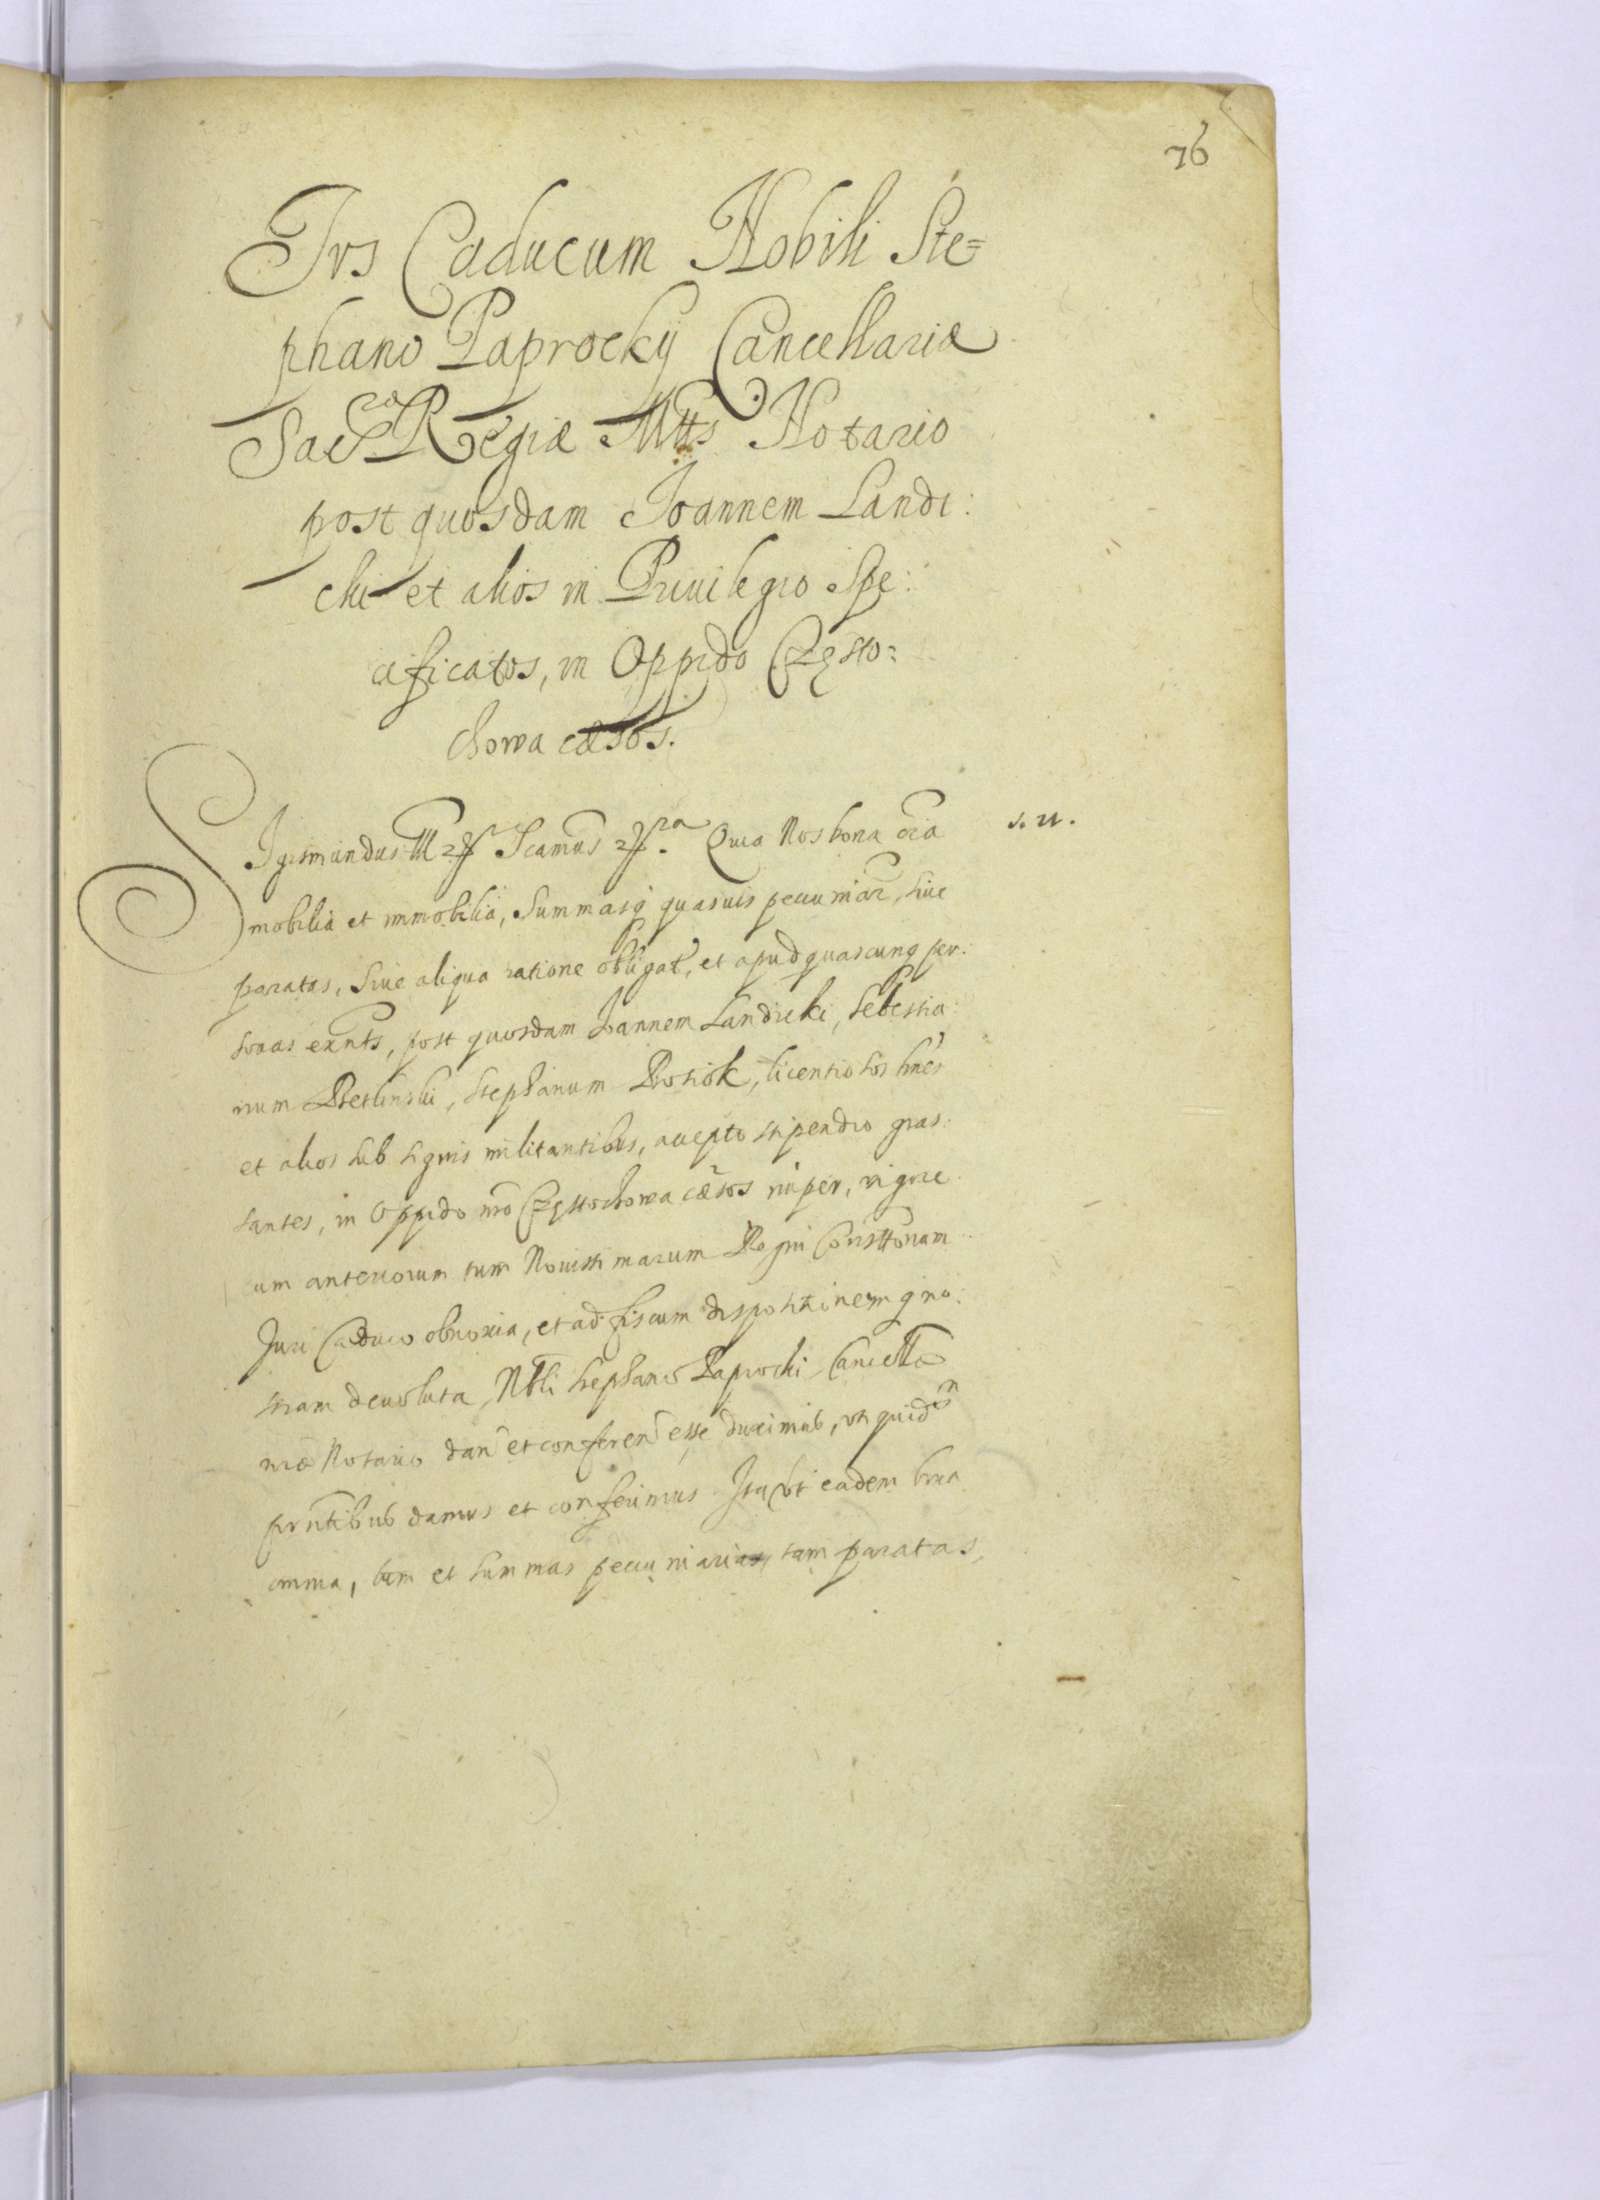 76
Ius Caducum Nobili Ste=
phano Paprocky Cancellariæ
Sacræ Regiæ Mttis Notario
post quosdam Joannem Landi:
cki et alios in Priuilegio Spe:
cificatos, in Oppido Często:
chowa cæsos.
Sigismundus III Scamus Quia Nos bona oia s. u.
mobilia et immobilia, Summasq quasuis pecuniar, siue
paratas, siue aliqua ratione obligat, et apud quascunq per:
sonas exnts, post quosdam Joannem Landicki, Sebestia:
num Pietlinski, Stephanum Protiok, licentiosos hnes
et alios sub signis militantibus, accepto stipendio gras:
santes, in Oppido nro Częstochowa cæsos nuper, vigore
cum anteriorum tum Nouissimarum Regni Consttonum
Juri Caduco obnoxia, et ad fiscum dispositinemq no:
stram deuoluta, Nbli Stephano Paprocki Cancellæ
nræ Notario dan et conferen esse duximus, vti quidem
prntibus damus et conferimus. Ita vt eadem bna
omnia, tum et summas pecuniarias, tam paratas,